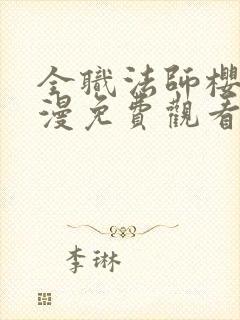 全職法師櫻
漫免費觀看
李琳